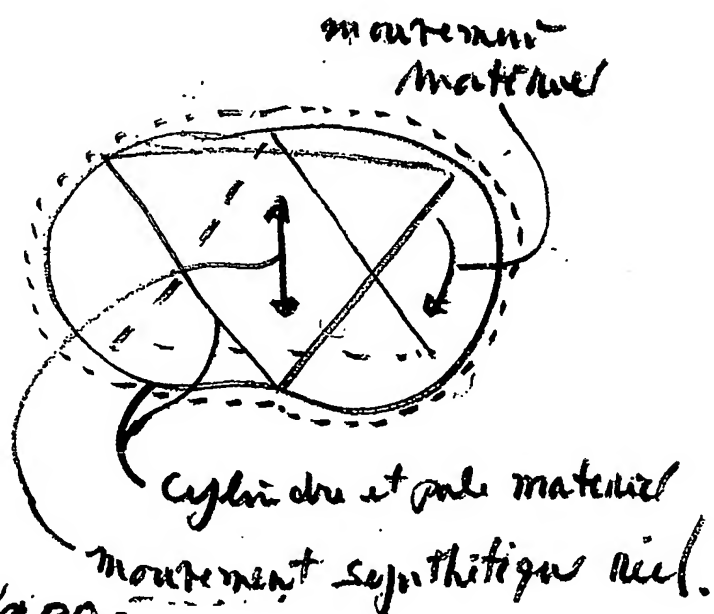 mouvement
matériel
Cylindre et pale matériel
mouvement synthétique réel.